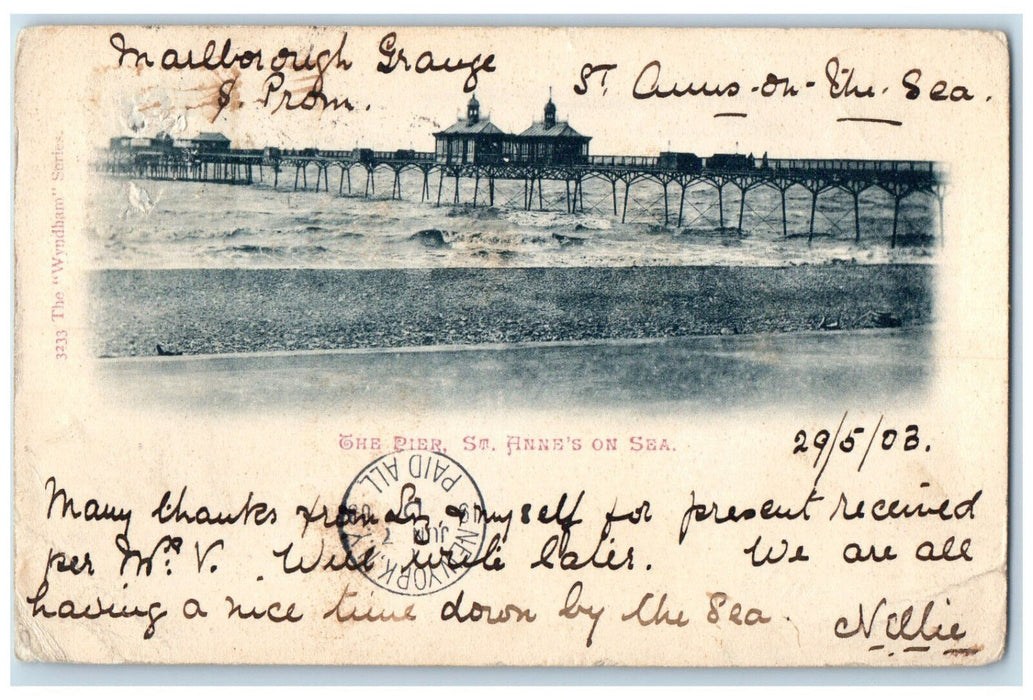 Marlborough Grange
S. Prom.
St. Anns-on-the-Sea.
3233 The "Wyndham" Series.
The Pier, St. Anne's on Sea.
29/5/03.
NEW YORK, N.Y. PAID ALL
JUN 7
Many thanks from & myself for present received
per Mrs. V. Will write later. We are all
having a nice time down by the Sea.
Nellie